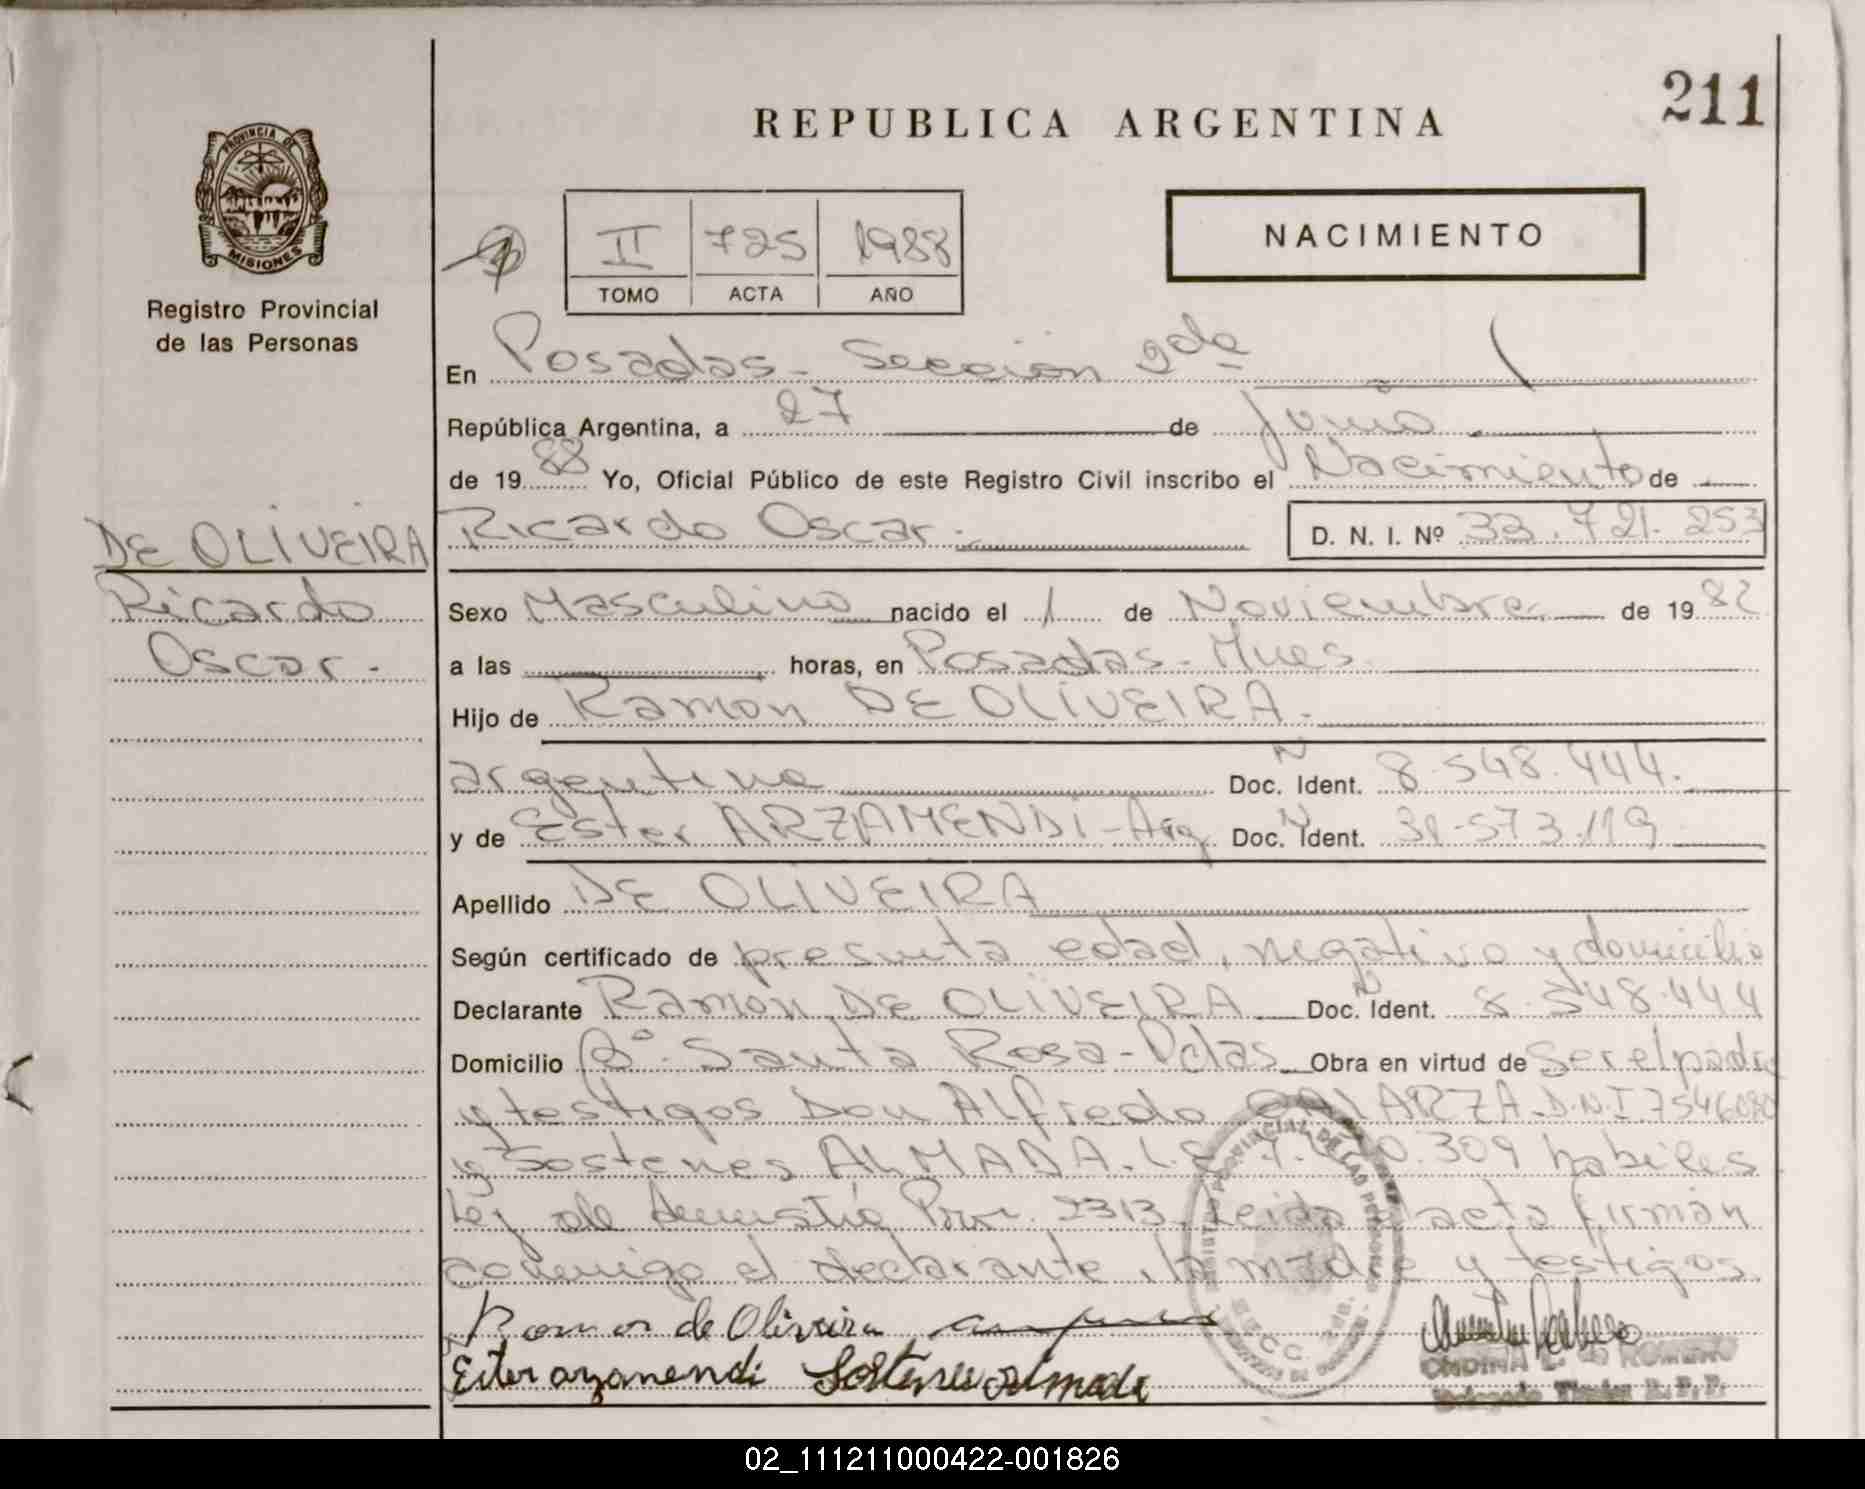 211
REPUBLICA ARGENTINA
PROVINCIA DE
MISIONES
Registro Provincial
de las Personas
II 725 1988
TOMO ACTA AÑO
NACIMIENTO
En Posadas - Sección 2da
República Argentina, a 27 de Junio
de 1988 Yo, Oficial Público de este Registro Civil inscribo el Nacimiento de
DE OLIVEIRA
Ricardo
Oscar.-
Ricardo Oscar.- D. N. I. Nº 33.721.253
Sexo Masculino nacido el 1 de Noviembre de 1982
a las horas, en Posadas - Mnes.
Hijo de Ramon DE OLIVEIRA.
argentino Doc. Ident. 8.548.444.
y de Ester ARZAMENDI - Arg Doc. Ident. 31.573.119
Apellido DE OLIVEIRA
Según certificado de presunta edad, negativo y domicilio
Declarante Ramon DE OLIVEIRA Doc. Ident. 8.548.444
Domicilio Bº. Santa Rosa - Pdas. Obra en virtud de ser el padre
y testigos Don Alfredo GALARZA. D.N.I 7546080
y Sostenes ALMADA. L.E 309 habiles
Ley de Amnistía Prov. 2313. Leida acta firman
conmigo el declarante, la madre y testigos
Ramon de Oliveira
Ester arzamendi Sostenes Almada
ONDINA E. de ROMERO
R. P. P.
02_111211000422-001826